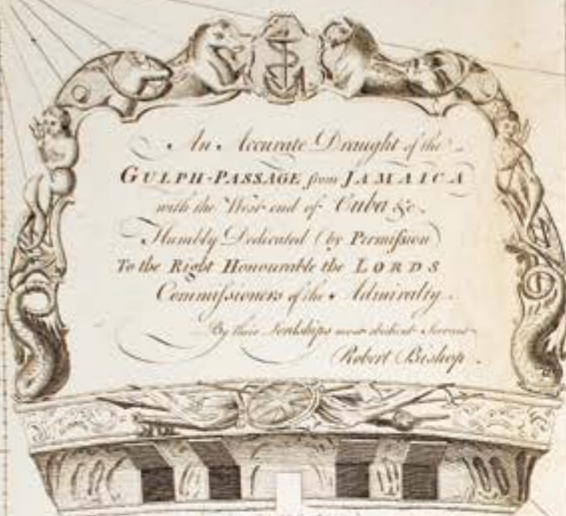 An Accurate Draught of the
GULPH-PASSAGE from JAMAICA
with the West end of Cuba &c.
Humbly Dedicated (by Permiſsion)
To the Right Honourable the LORDS
Commiſsioners of the Admiralty.
By their Lordships most obedient Servant
Robert Bishop.